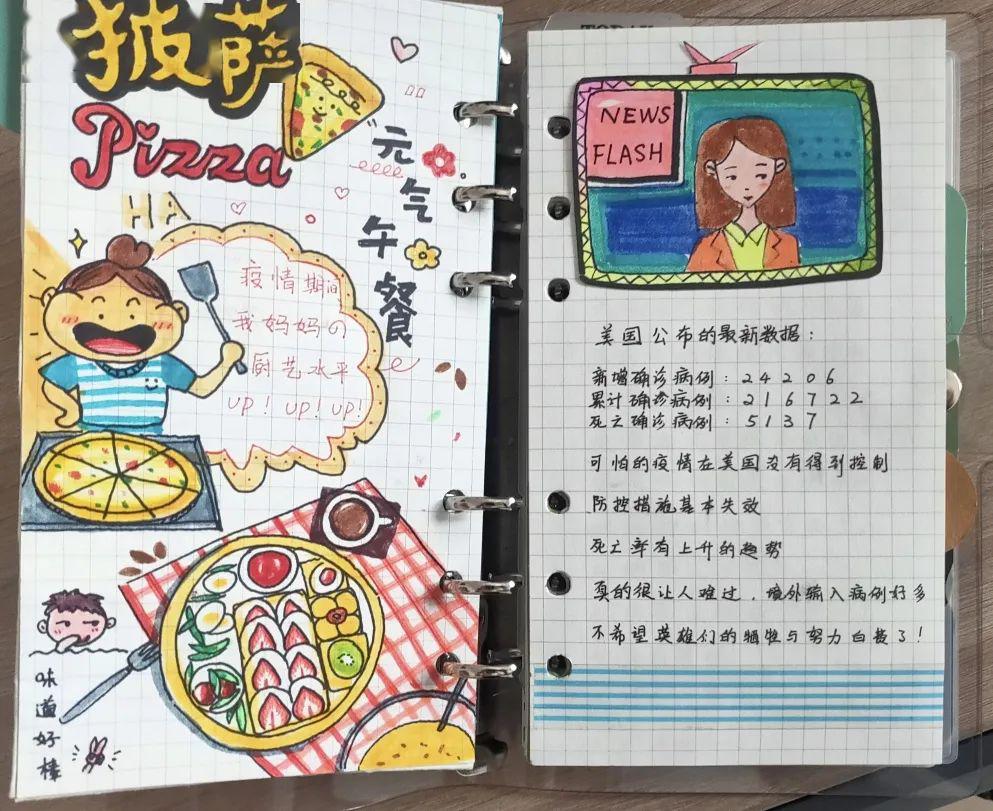 披萨
Pizza
HA
元气午餐
疫情期间
我妈妈の
厨艺水平
UP! UP! UP!
味道好棒
NEWS
FLASH
美国公布的最新数据:
新增确诊病例:24206
累计确诊病例:216722
死亡确诊病例:5137
可怕的疫情在美国没有得到控制
防控措施基本失效
死亡率有上升的趋势
真的很让人难过,境外输入病例好多
不希望英雄们的牺牲与努力白费了!